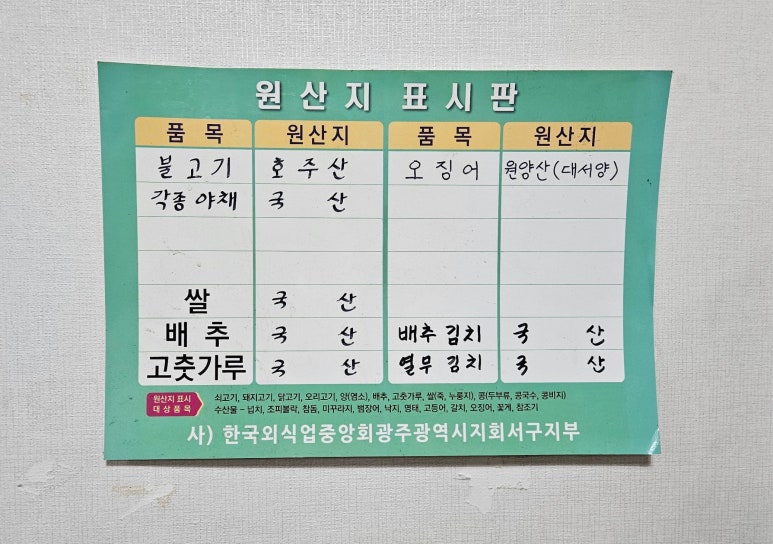 원산지 표시판
품목 원산지 품목 원산지
불고기 호주산 오징어 원양산(대서양)
각종 야채 국산
쌀 국산
배추 국산 배추 김치 국산
고춧가루 국산 열무 김치 국산
원산지 표시 대상품목
쇠고기, 돼지고기, 닭고기, 오리고기, 양(염소), 배추, 고춧가루, 쌀(죽, 누룽지), 콩(두부류, 콩국수, 콩비지)
수산물 - 넙치, 조피볼락, 참돔, 미꾸라지, 뱀장어, 낙지, 명태, 고등어, 갈치, 오징어, 꽃게, 참조기
사) 한국외식업중앙회광주광역시지회서구지부